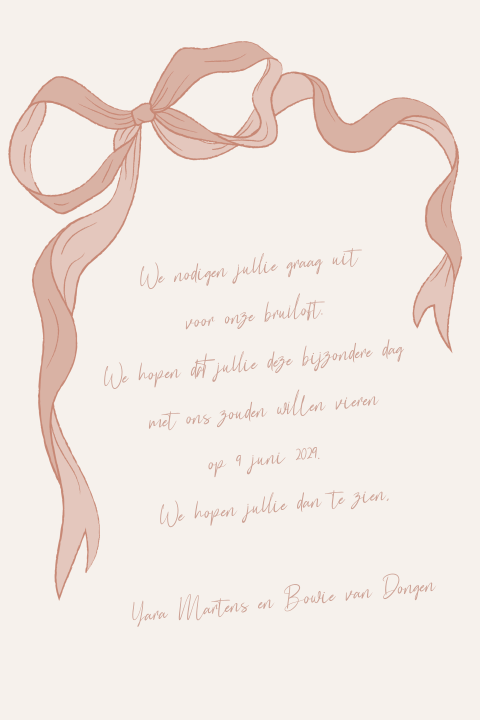 We nodigen jullie graag uit
voor onze bruiloft.
We hopen dat jullie deze bijzondere dag
met ons zouden willen vieren
op 9 juni 2029.
We hopen jullie dan te zien,
Yara Martens en Bowie van Dongen